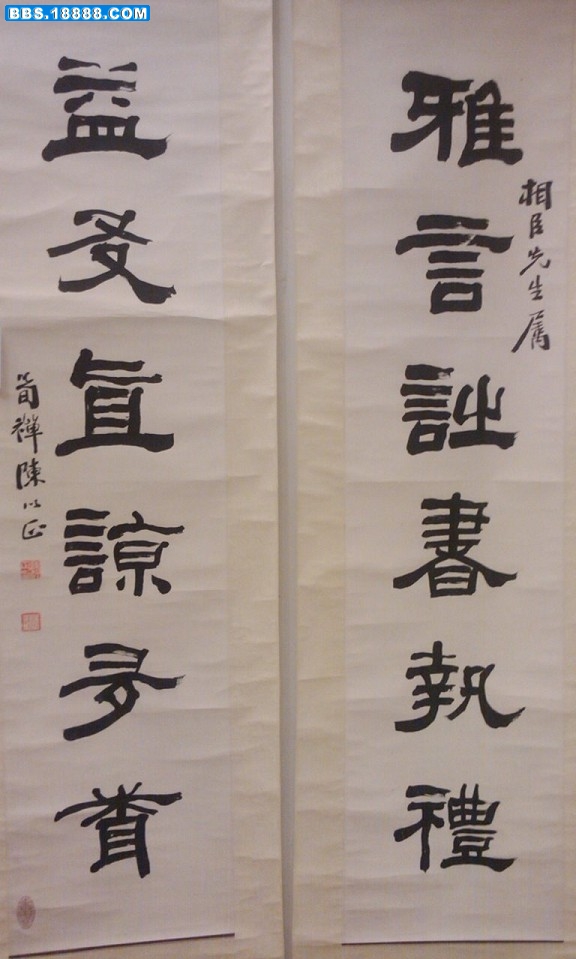 BBS.18888.COM
雅言詩書執禮
相臣先生属
益友直諒多聞
筍禪陳以正